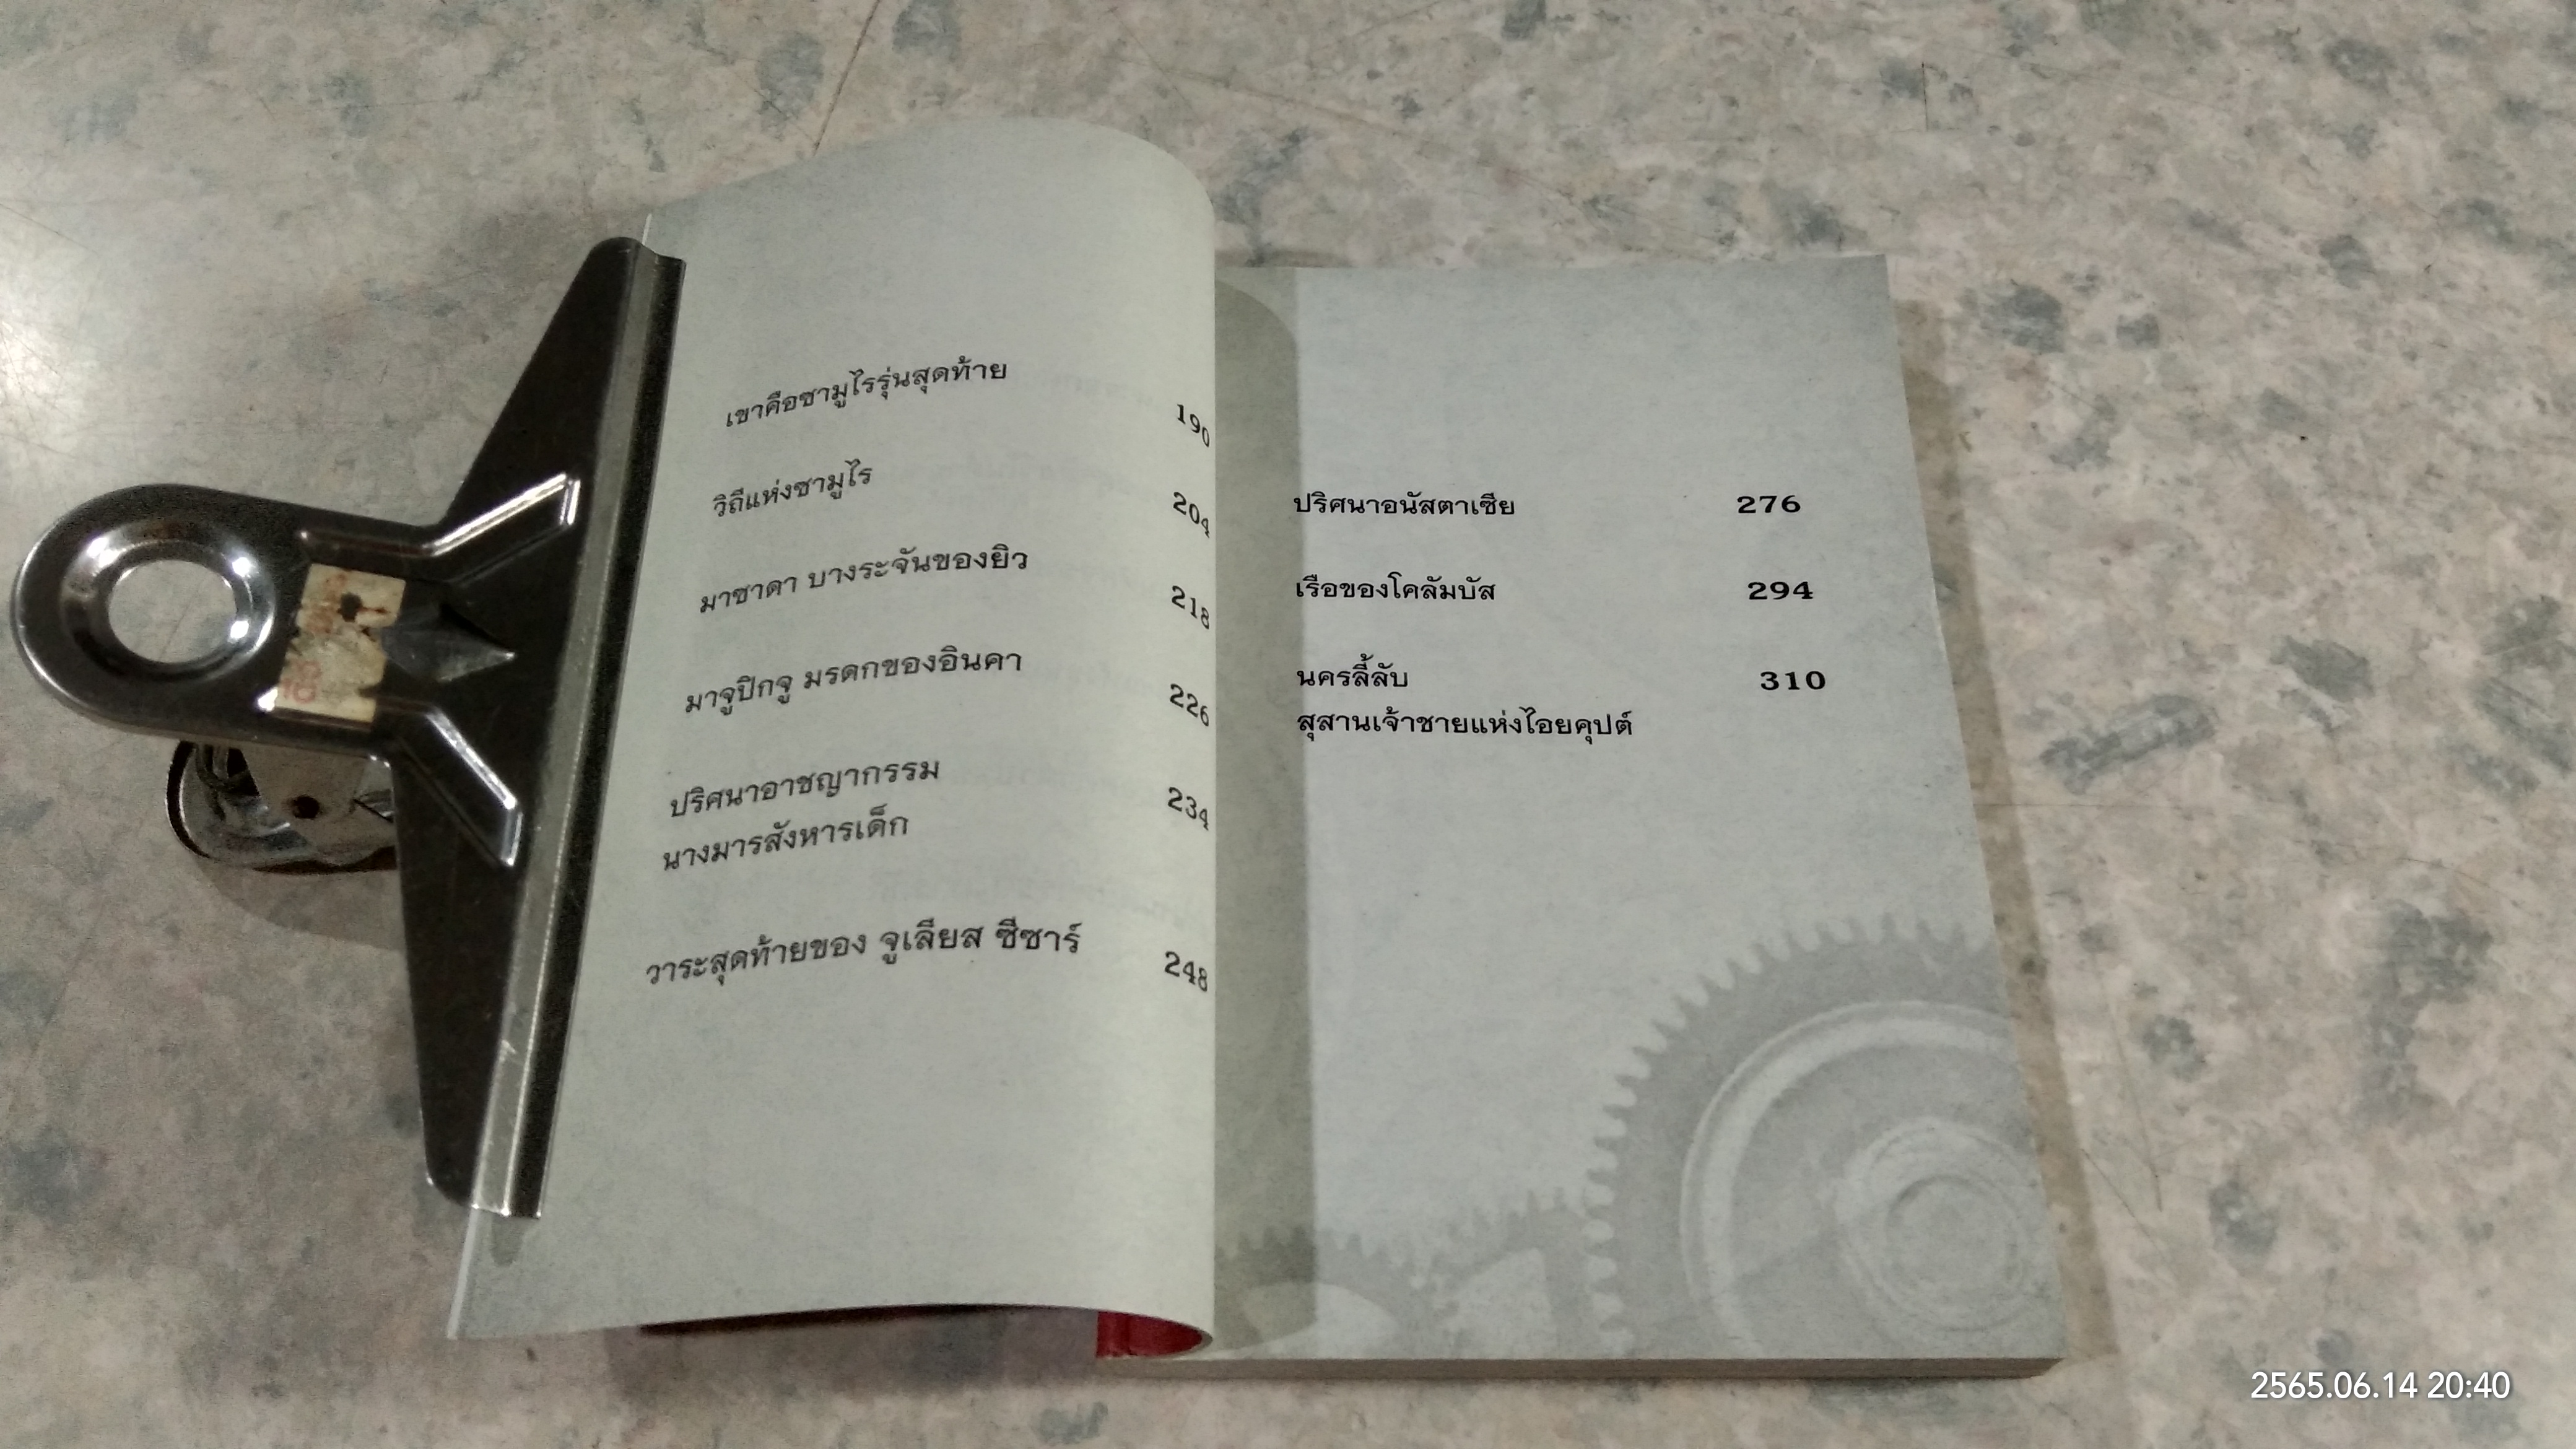 เขาคือซามูไรรุ่นสุดท้าย 190
วิถีแห่งซามูไร 204
มาซาดา บางระจันของยิว 218
มาจูปิกจู มรดกของอินคา 226
ปริศนาอาชญากรรม 234
นางมารสังหารเด็ก
วาระสุดท้ายของ จูเลียส ซีซาร์ 248
ปริศนาอนัสตาเซีย 276
เรือของโคลัมบัส 294
นครลี้ลับ 310
สุสานเจ้าชายแห่งไอยคุปต์
2565.06.14 20:40